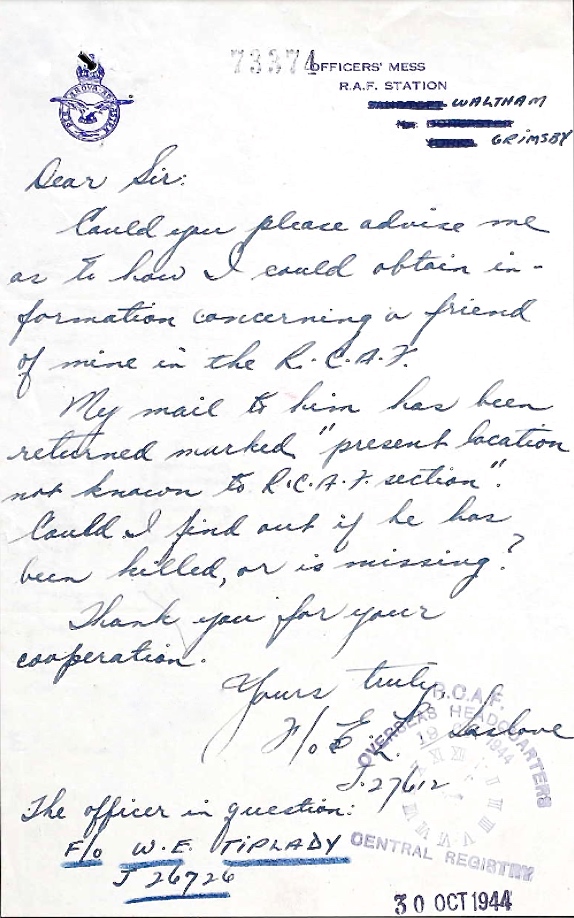 73374
OFFICERS' MESS
R.A.F. STATION
WALTHAM
GRIMSBY
Dear Sir:
Could you please advise me
as to how I could obtain in-
formation concerning a friend
of mine in the R.C.A.F.
My mail to him has been
returned marked "present location
not known to R.C.A.F. section".
Could I find out if he has
been killed, or is missing?
Thank you for your
cooperation.
Yours truly,
F/o E. L. Saslove
J.27612
R.C.A.F.
OVERSEAS HEADQUARTERS
1944
CENTRAL REGISTRY
The officer in question:
F/o W.E. TIPLADY
J 26726
30 OCT 1944